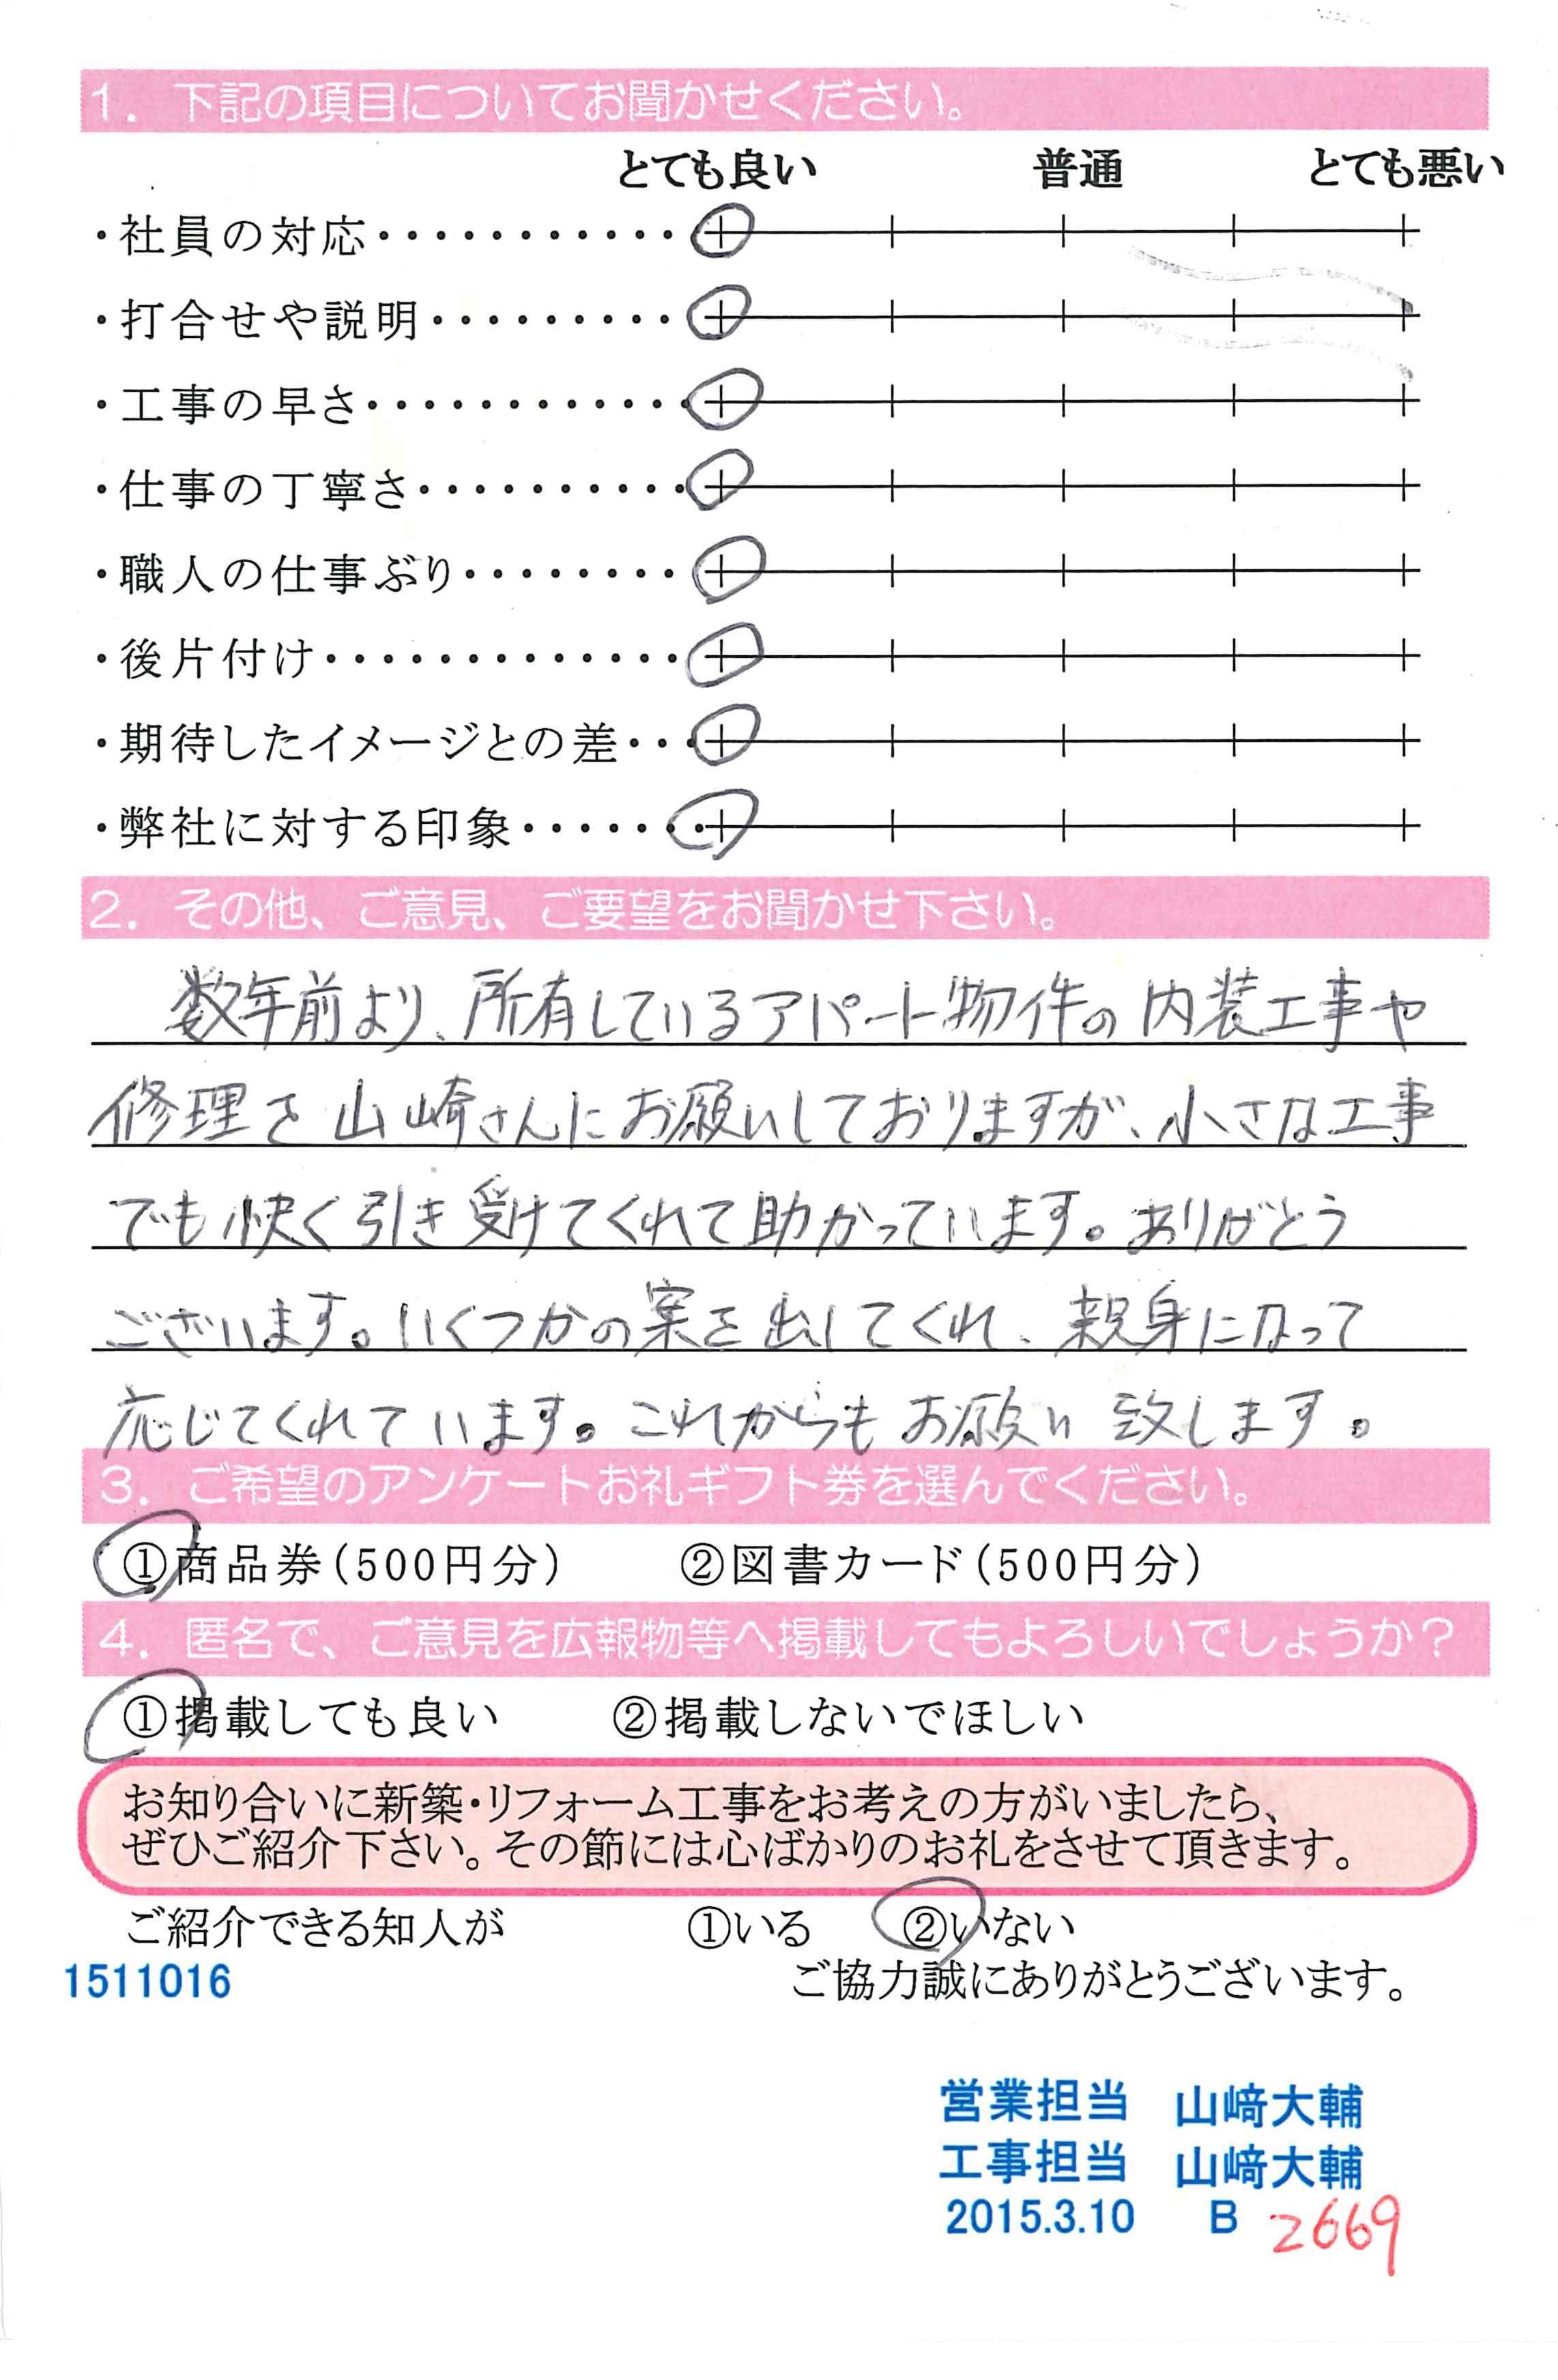 1. 下記の項目についてお聞かせください。
とても良い 普通 とても悪い
・社員の対応・・・・・・・・・・・
・打合せや説明・・・・・・・・・
・工事の早さ・・・・・・・・・・・・
・仕事の丁寧さ・・・・・・・・・・
・職人の仕事ぶり・・・・・・・・
・後片付け・・・・・・・・・・・・・
・期待したイメージとの差・・・
・弊社に対する印象・・・・・・・
2. その他、ご意見、ご要望をお聞かせ下さい。
数年前より、所有しているアパート物件の内装工事や
修理を山崎さんにお願いしておりますが、小さな工事
でも快く引き受けてくれて助かっています。ありがとう
ございます。いくつかの案を出してくれ、親身になって
応じてくれています。これからもお願い致します。
3. ご希望のアンケートお礼ギフト券を選んでください。
①商品券(500円分) ②図書カード(500円分)
4. 匿名で、ご意見を広報物等へ掲載してもよろしいでしょうか?
①掲載しても良い ②掲載しないでほしい
お知り合いに新築・リフォーム工事をお考えの方がいましたら、
ぜひご紹介下さい。その節には心ばかりのお礼をさせて頂きます。
ご紹介できる知人が ①いる ②いない
1511016 ご協力誠にありがとうございます。
営業担当 山﨑大輔
工事担当 山﨑大輔
2015.3.10 B 2669